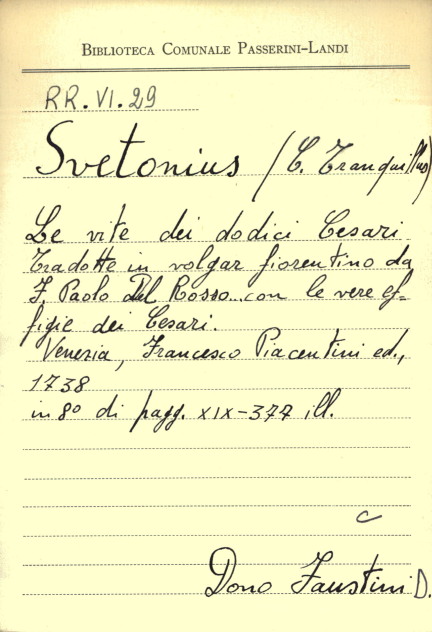 BIBLIOTECA COMUNALE PASSERINI-LANDI
RR.VI.29
Svetonius (C. Tranquillus)
Le vite dei dodici Cesari
Tradotte in volgar fiorentino da
F. Paolo Del Rosso...con le vere ef=
figie dei Cesari.
Venezia, Francesco Piacentini ed.,
1738
in 8º di pagg. XIX-377 ill.
C
Dono Faustini D.